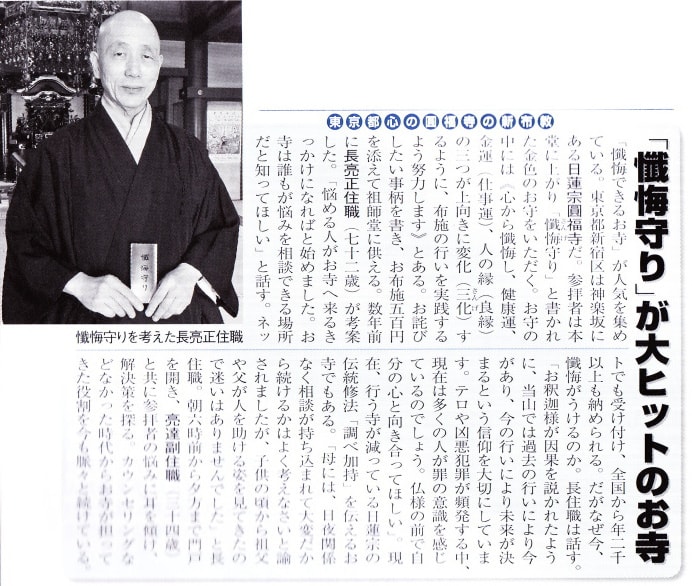 「懺悔守り」が大ヒットのお寺
東京都心の圓福寺の新布教
『懺悔できるお寺』が人気を集め
ている。東京都新宿区は神楽坂に
ある日蓮宗圓福寺だ。参拝者は本
堂に上がり「懺悔守り」と書かれ
た金色のお守をいただく。お守の
中には《心から懺悔し、健康運、
金運（仕事運）、人の縁（良縁）
の三つが上向きに変化（三化）す
るように、布施の行いを実践する
よう努力します》とある。お詫び
したい事柄を書き、お布施五百円
を添えて祖師堂に供える。数年前
に長亮正住職（七十二歳）が考案
した。「悩める人がお寺へ来るき
っかけになればと始めました。お
寺は誰もが悩みを相談できる場所
だと知ってほしい」と話す。ネッ
トでも受け付け、全国から年二千
以上も納められる。だがなぜ今、
懺悔がうけるのか。長住職は話す。
「お釈迦様が因果を説かれたよう
に、当山では過去の行いにより今
があり、今の行いにより未来が決
まるという信仰を大切にしていま
す。テロや凶悪犯罪が頻発する中、
現在は多くの人が罪の意識を感じ
ているのでしょう。仏様の前で自
分の心と向き合ってほしい」。現
在、行う寺が減っている日蓮宗の
伝統修法「調べ加持」を伝えるお
寺でもある。「母には、日夜関係
なく相談が持ち込まれて大変だか
ら続けるかはよく考えなさいと諭
されましたが、子供の頃から祖父
や父が人を助ける姿を見ていたの
で迷いはありませんでした」と長
住職。朝六時前から夕方まで門戸
を開き、亮達副住職（三十四歳）
と共に参拝者の悩みに耳を傾け、
解決策を探る。カウンセリングな
どなかった時代からお寺が担って
きた役割を今も脈々と続ける。
懺悔守り
懺悔守りを考えた長亮正住職